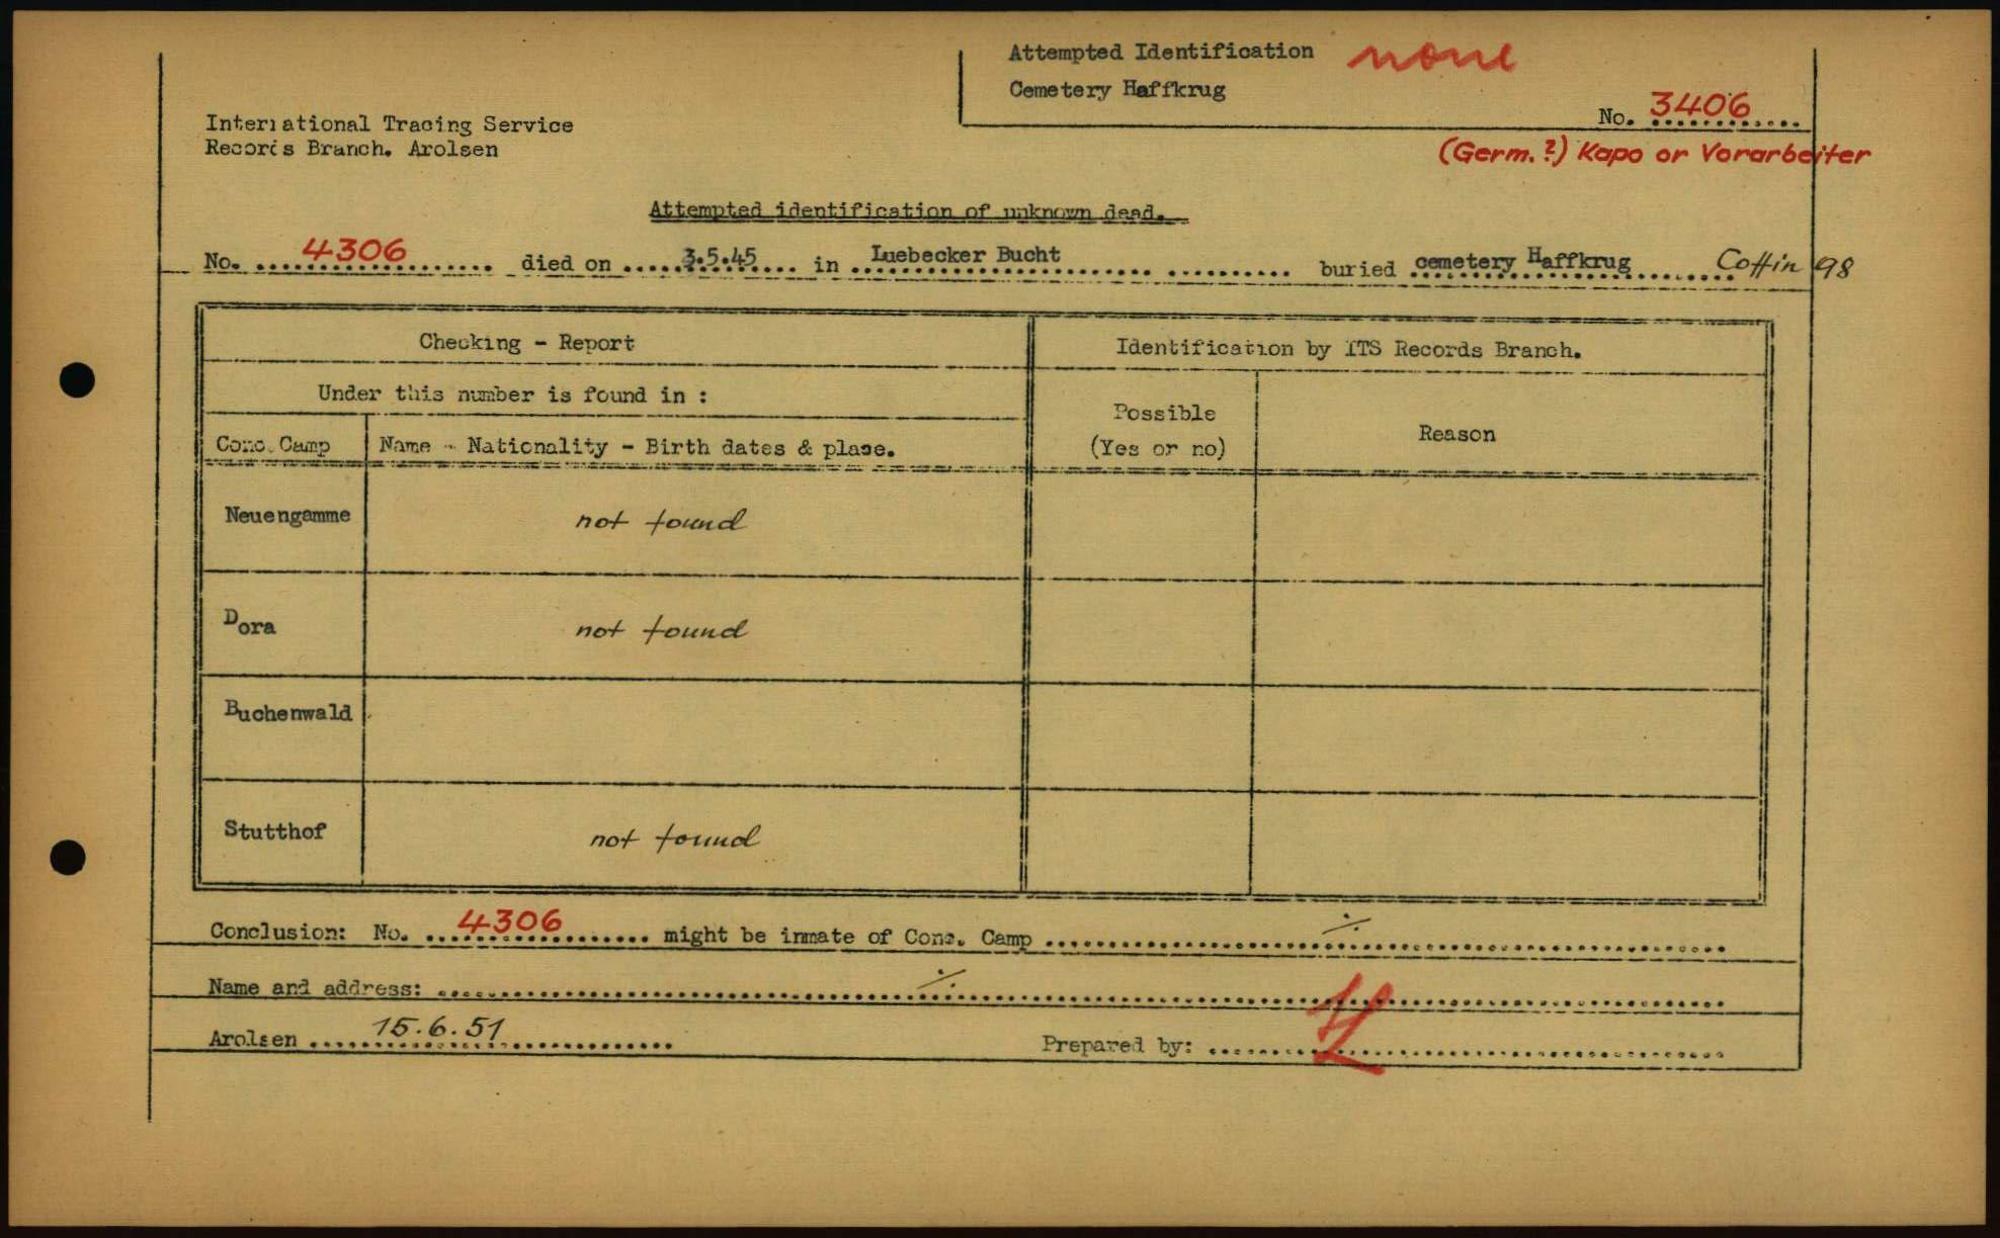 Attempted Identification none
Cemetery Haffkrug
No. 3406
International Tracing Service
Records Branch. Arolsen
(Germ.?) Kapo or Vorarbeiter
Attempted identification of unknown dead.
No. 4306 died on 3.5.45 in Luebecker Bucht buried cemetery Haffkrug Coffin 98
Checking - Report
Identification by ITS Records Branch.
Under this number is found in :
Possible
(Yes or no)
Reason
Conc.Camp
Name - Nationality - Birth dates & place.
Neuengamme not found
Dora not found
Buchenwald
Stutthof not found
Conclusion: No. 4306 might be inmate of Conc. Camp ./.
Name and address: ./.
Arolsen 15.6.51 Prepared by: